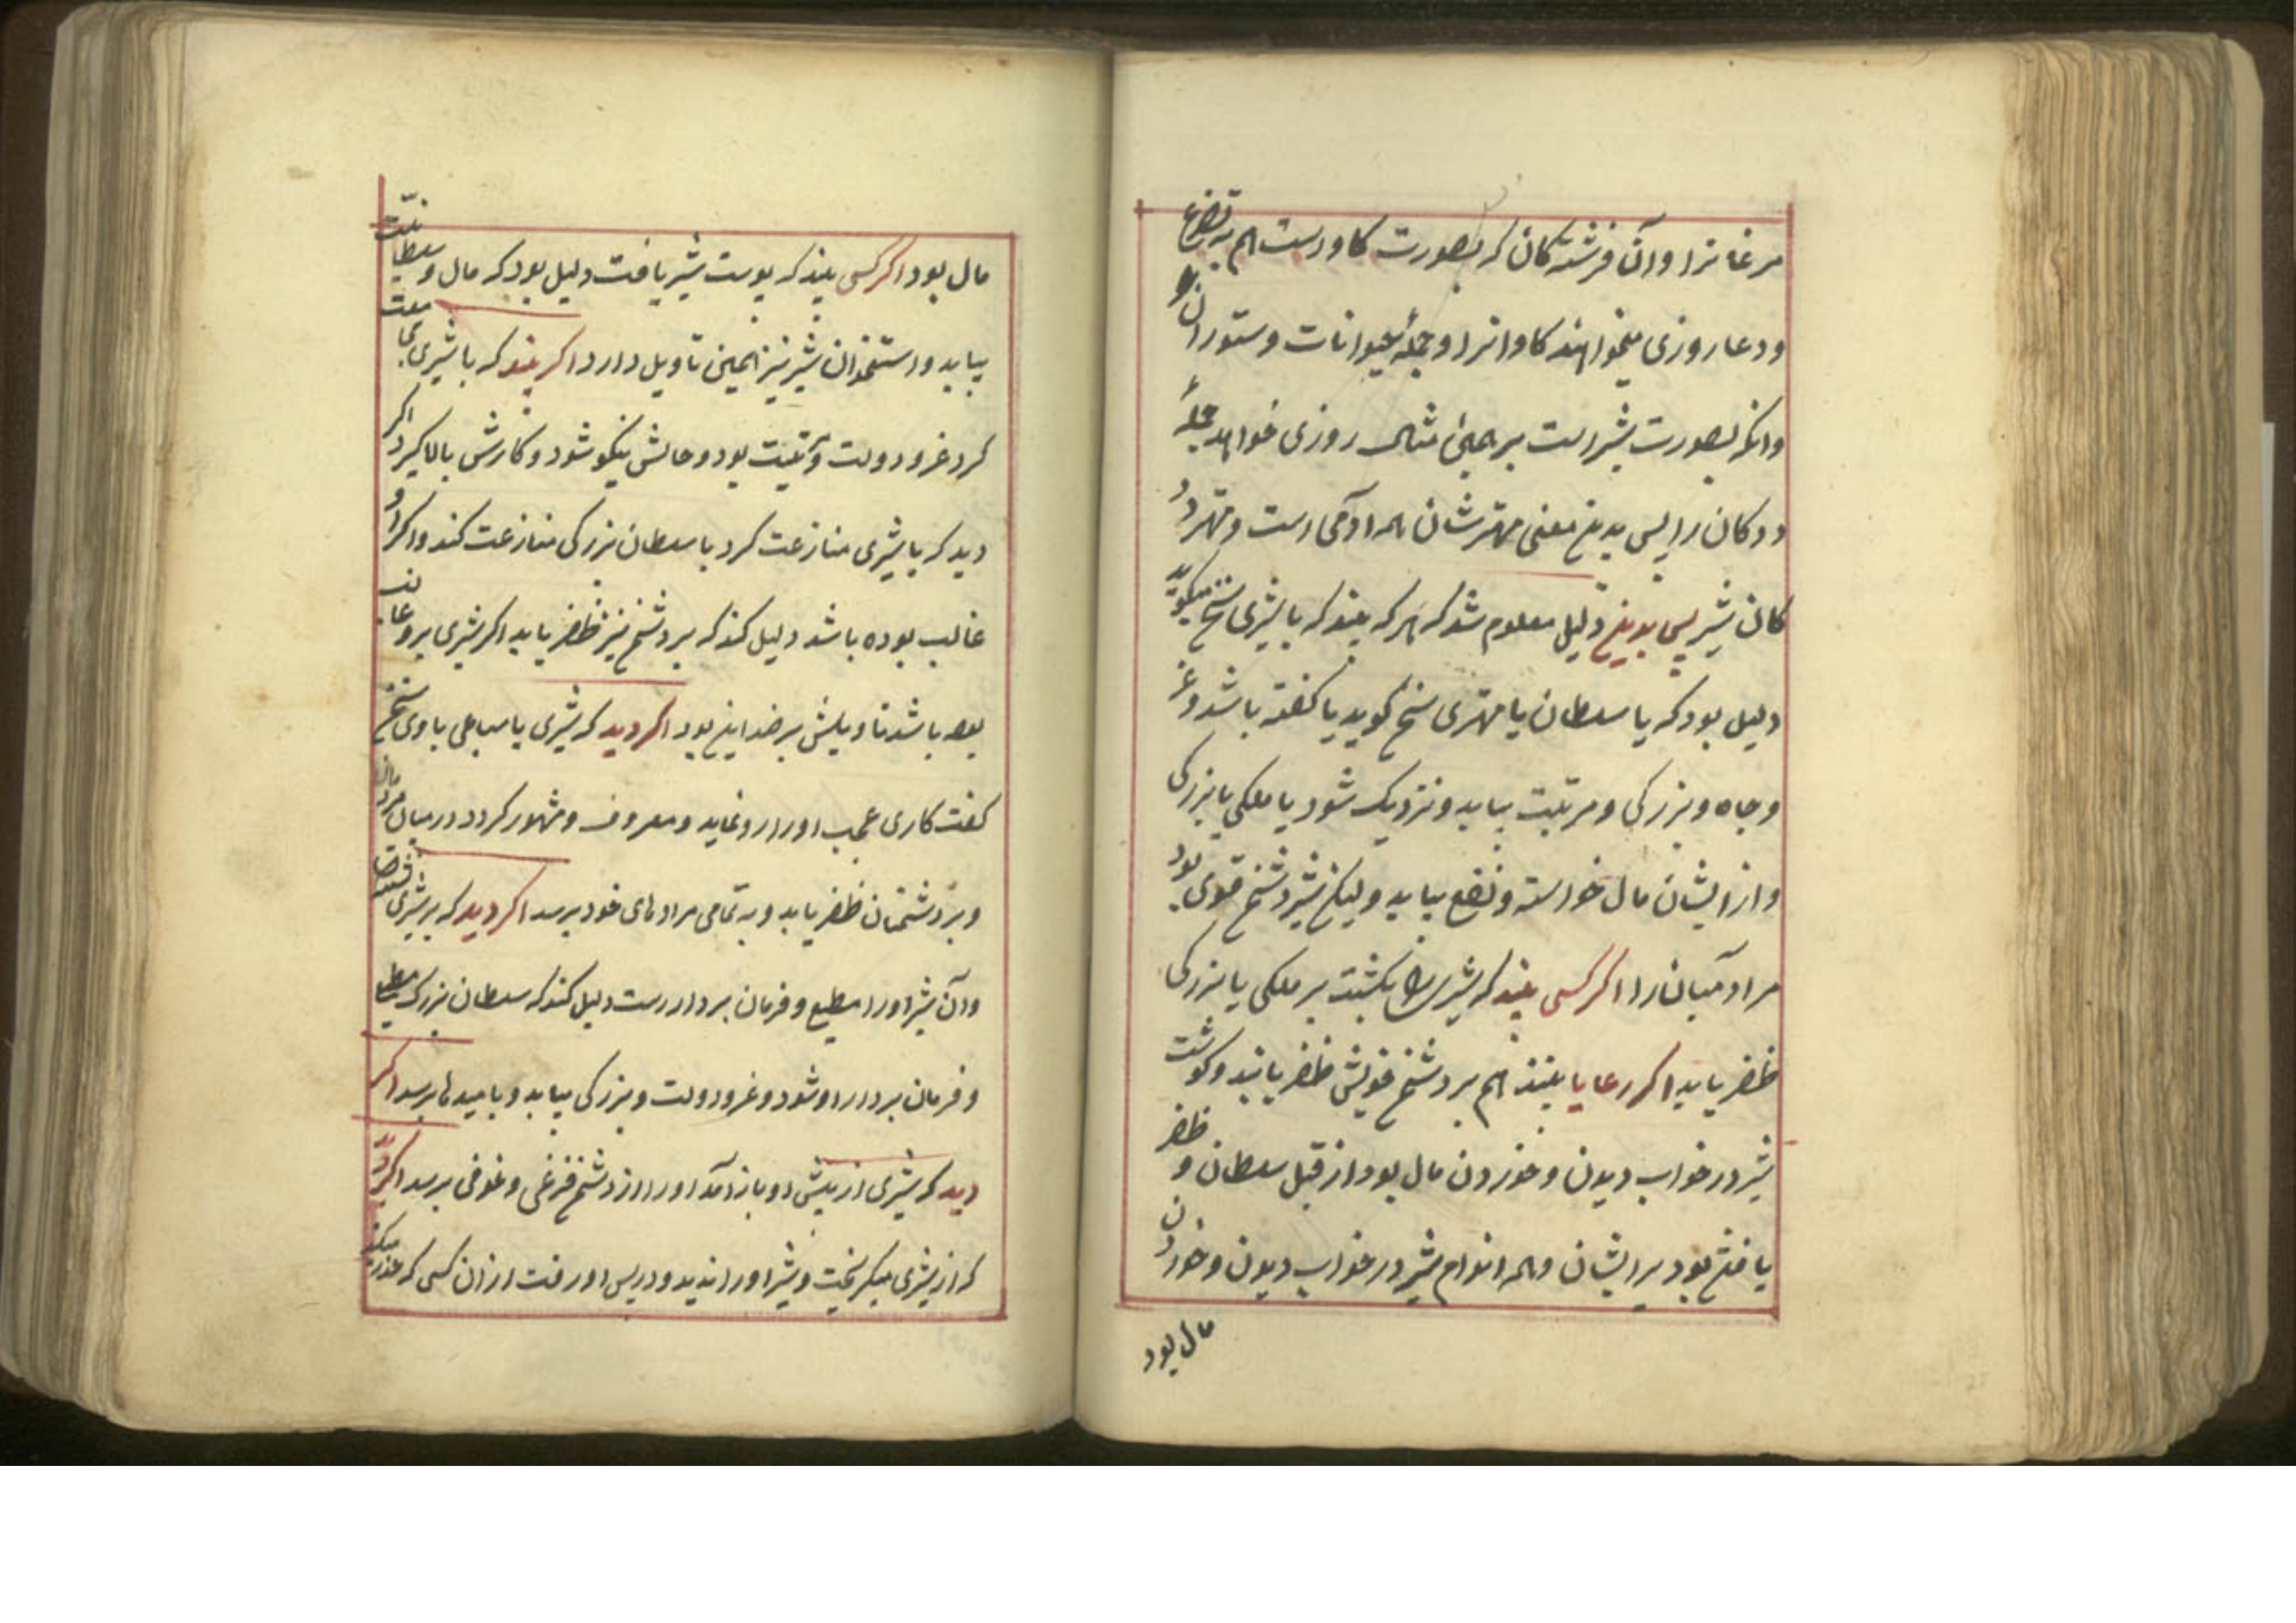 مرغانرا و آن فرشته کان که بصورت کاوست هم به تضرع
و دعا روزی میخواهند کاوانرا و جمله حیوانات و ستورانرا
وانکه بصورت شیر است بر همین مثال روزی خواهد جمله
ددکان را پس بدین معنی مهتر شان همه آدمی است و مهتر دد
کان شیر پس بدین دلیل معلوم شد که هر که بیند که با شیری سخن میکوید
دلیل بود که با سلطان یا مهتری سخن کوید یا کفته باشد و عز
و جاه و بزرکی و مرتبت بیابد و نزدیک شود با ملکی یا بزرکی
و از ایشان مال خواسته و نفع بیابد ولیکن شیر دشمن قوی بود
مر آدمیانرا اکر کسی بیند که شیری را بکشت بر ملکی یا بزرکی
ظفر یابد اکر رعایا بینند هم بر دشمن خویش ظفر یابند و کوشت
شیر در خواب دیدن و خوردن مال بود از قبل سلطان و ظفر
یافتن بود بر ایشان و همه اندام شیر در خواب دیدن و خوردن
مال بود
مال بود اکر کسی بیند که پوست شیر یافت دلیل بود که مال و سلطانیت
بیابد و استخوان شیر نیز همین تاویل دارد اکر بیند که با شیری مجامعت
کرد عز و دولت و تقویت بود و حالش نیکو شود و کارش بالا کیرد اکر
دید که با شیری منازعت کرد با سلطان بزرکی منازعت کند و اکر او
غالب بوده باشد دلیل کند که بر دشمن نیز ظفر یابد اکر شیری بر و غالب
بوده باشد تاویلش بر ضد این بود اکر دید که شیری یا سباعی با وی سخن
کفت کاری عجب او را رو نماید و معروف و مشهور کردد در میان مردمان
و بر دشمنان ظفر یابد و به تمامی مرادهای خود برسد اکر دید که بر شیری نشسته
و آن شیر او را مطیع و فرمان بردار است دلیل کند که سلطان بزرک مطیع
و فرمان بردار او شود و عز و دولت و بزرکی بیابد و بامیدها برسد اکر
دید که شیری از پیش او باز آمد او را از دشمن فزعی و خوفی برسد اکر دید
که از شیری میکریخت و شیر او را ندید و در پس او رفت از آن کسی که حذر میکند